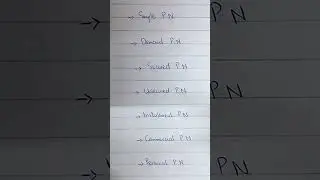 → Simple P.N
→ Demand P.N
→ Secured P.N
→ Unsecured P.N
→ Installment P.N
→ Commercial P.N
→ Personal P.N